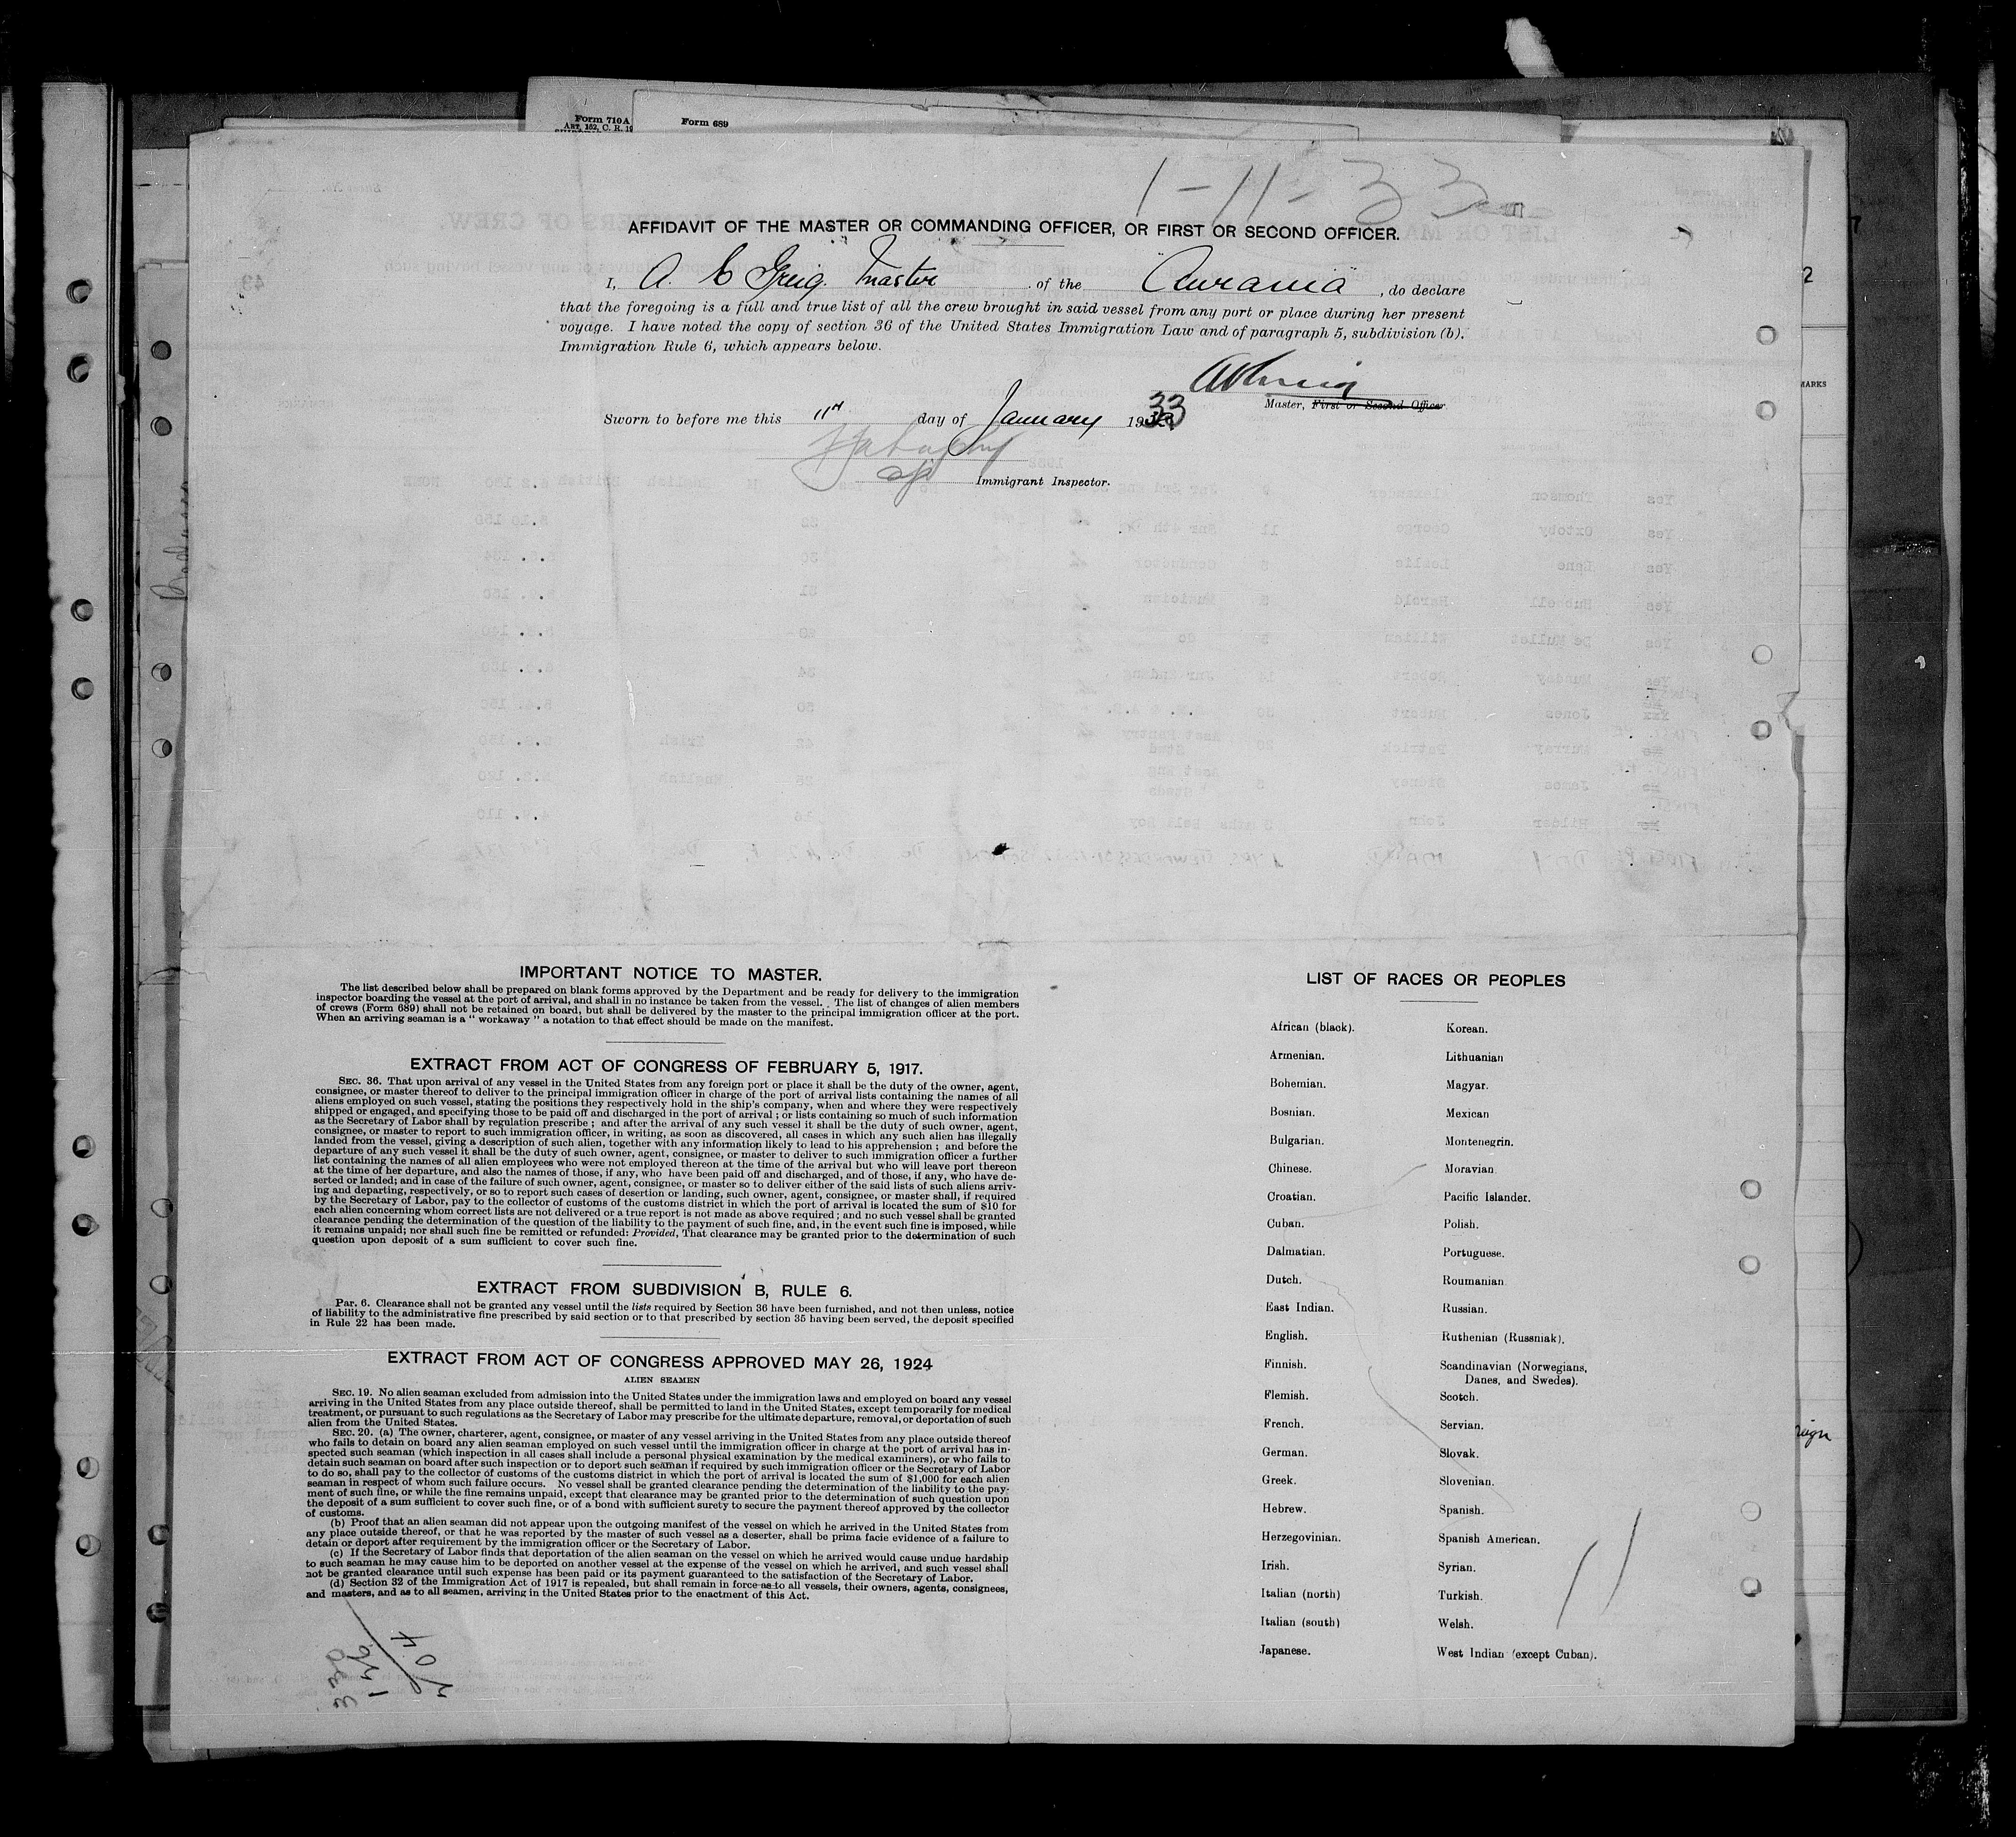 Form 710 A
ART. 162, C. R. 19
Form 689
1-11-33
AFFIDAVIT OF THE MASTER OR COMMANDING OFFICER, OR FIRST OR SECOND OFFICER.
I, A. C Greig. Master of the "Aurania", do declare
that the foregoing is a full and true list of all the crew brought in said vessel from any port or place during her present
voyage. I have noted the copy of section 36 of the United States Immigration Law and of paragraph 5, subdivision (b).
Immigration Rule 6, which appears below.
Master, First or Second Officer.
Sworn to before me this 11th day of January 1933
Immigrant Inspector.
MARKS
IMPORTANT NOTICE TO MASTER.
The list described below shall be prepared on blank forms approved by the Department and be ready for delivery to the immigration
inspector boarding the vessel at the port of arrival, and shall in no instance be taken from the vessel. The list of changes of alien members
of crews (Form 689) shall not be retained on board, but shall be delivered by the master to the principal immigration officer at the port.
When an arriving seaman is a " workaway " a notation to that effect should be made on the manifest.
EXTRACT FROM ACT OF CONGRESS OF FEBRUARY 5, 1917.
SEC. 36. That upon arrival of any vessel in the United States from any foreign port or place it shall be the duty of the owner, agent,
consignee, or master thereof to deliver to the principal immigration officer in charge of the port of arrival lists containing the names of all
aliens employed on such vessel, stating the positions they respectively hold in the ship's company, when and where they were respectively
shipped or engaged, and specifying those to be paid off and discharged in the port of arrival ; or lists containing so much of such information
as the Secretary of Labor shall by regulation prescribe ; and after the arrival of any such vessel it shall be the duty of such owner, agent,
consignee, or master to report to such immigration officer, in writing, as soon as discovered, all cases in which any such alien has illegally
landed from the vessel, giving a description of such alien, together with any information likely to lead to his apprehension ; and before the
departure of any such vessel it shall be the duty of such owner, agent, consignee, or master to deliver to such immigration officer a further
list containing the names of all alien employees who were not employed thereon at the time of the arrival but who will leave port thereon
at the time of her departure, and also the names of those, if any, who have been paid off and discharged, and of those, if any, who have de-
serted or landed; and in case of the failure of such owner, agent, consignee, or master so to deliver either of the said lists of such aliens arriv-
ing and departing, respectively, or so to report such cases of desertion or landing, such owner, agent, consignee, or master shall, if required
by the Secretary of Labor, pay to the collector of customs of the customs district in which the port of arrival is located the sum of $10 for
each alien concerning whom correct lists are not delivered or a true report is not made as above required ; and no such vessel shall be granted
clearance pending the determination of the question of the liability to the payment of such fine, and, in the event such fine is imposed, while
it remains unpaid; nor shall such fine be remitted or refunded: Provided, That clearance may be granted prior to the determination of such
question upon deposit of a sum sufficient to cover such fine.
EXTRACT FROM SUBDIVISION B, RULE 6.
Par. 6. Clearance shall not be granted any vessel until the lists required by Section 36 have been furnished, and not then unless, notice
of liability to the administrative fine prescribed by said section or to that prescribed by section 35 having been served, the deposit specified
in Rule 22 has been made.
EXTRACT FROM ACT OF CONGRESS APPROVED MAY 26, 1924
ALIEN SEAMEN
SEC. 19. No alien seaman excluded from admission into the United States under the immigration laws and employed on board any vessel
arriving in the United States from any place outside thereof, shall be permitted to land in the United States, except temporarily for medical
treatment, or pursuant to such regulations as the Secretary of Labor may prescribe for the ultimate departure, removal, or deportation of such
alien from the United States.
SEC. 20. (a) The owner, charterer, agent, consignee, or master of any vessel arriving in the United States from any place outside thereof
who fails to detain on board any alien seaman employed on such vessel until the immigration officer in charge at the port of arrival has in-
spected such seaman (which inspection in all cases shall include a personal physical examination by the medical examiners), or who fails to
detain such seaman on board after such inspection or to deport such seaman if required by such immigration officer or the Secretary of Labor
to do so, shall pay to the collector of customs of the customs district in which the port of arrival is located the sum of $1,000 for each alien
seaman in respect of whom such failure occurs. No vessel shall be granted clearance pending the determination of the liability to the pay-
ment of such fine, or while the fine remains unpaid, except that clearance may be granted prior to the determination of such question upon
the deposit of a sum sufficient to cover such fine, or of a bond with sufficient surety to secure the payment thereof approved by the collector
of customs.
(b) Proof that an alien seaman did not appear upon the outgoing manifest of the vessel on which he arrived in the United States from
any place outside thereof, or that he was reported by the master of such vessel as a deserter, shall be prima facie evidence of a failure to
detain or deport after requirement by the immigration officer or the Secretary of Labor.
(c) If the Secretary of Labor finds that deportation of the alien seaman on the vessel on which he arrived would cause undue hardship
to such seaman he may cause him to be deported on another vessel at the expense of the vessel on which he arrived, and such vessel shall
not be granted clearance until such expense has been paid or its payment guaranteed to the satisfaction of the Secretary of Labor.
(d) Section 32 of the Immigration Act of 1917 is repealed, but shall remain in force as to all vessels, their owners, agents, consignees,
and masters, and as to all seamen, arriving in the United States prior to the enactment of this Act.
LIST OF RACES OR PEOPLES
African (black). Korean.
Armenian. Lithuanian
Bohemian. Magyar.
Bosnian. Mexican
Bulgarian. Montenegrin.
Chinese. Moravian
Croatian. Pacific Islander.
Cuban. Polish.
Dalmatian. Portuguese.
Dutch. Roumanian
East Indian. Russian.
English. Ruthenian (Russniak).
Finnish. Scandinavian (Norwegians,
Danes, and Swedes).
Flemish. Scotch.
French. Servian.
German. Slovak.
Greek. Slovenian.
Hebrew. Spanish.
Herzegovinian. Spanish American.
Irish. Syrian.
Italian (north) Turkish.
Italian (south) Welsh.
Japanese. West Indian (except Cuban).
11